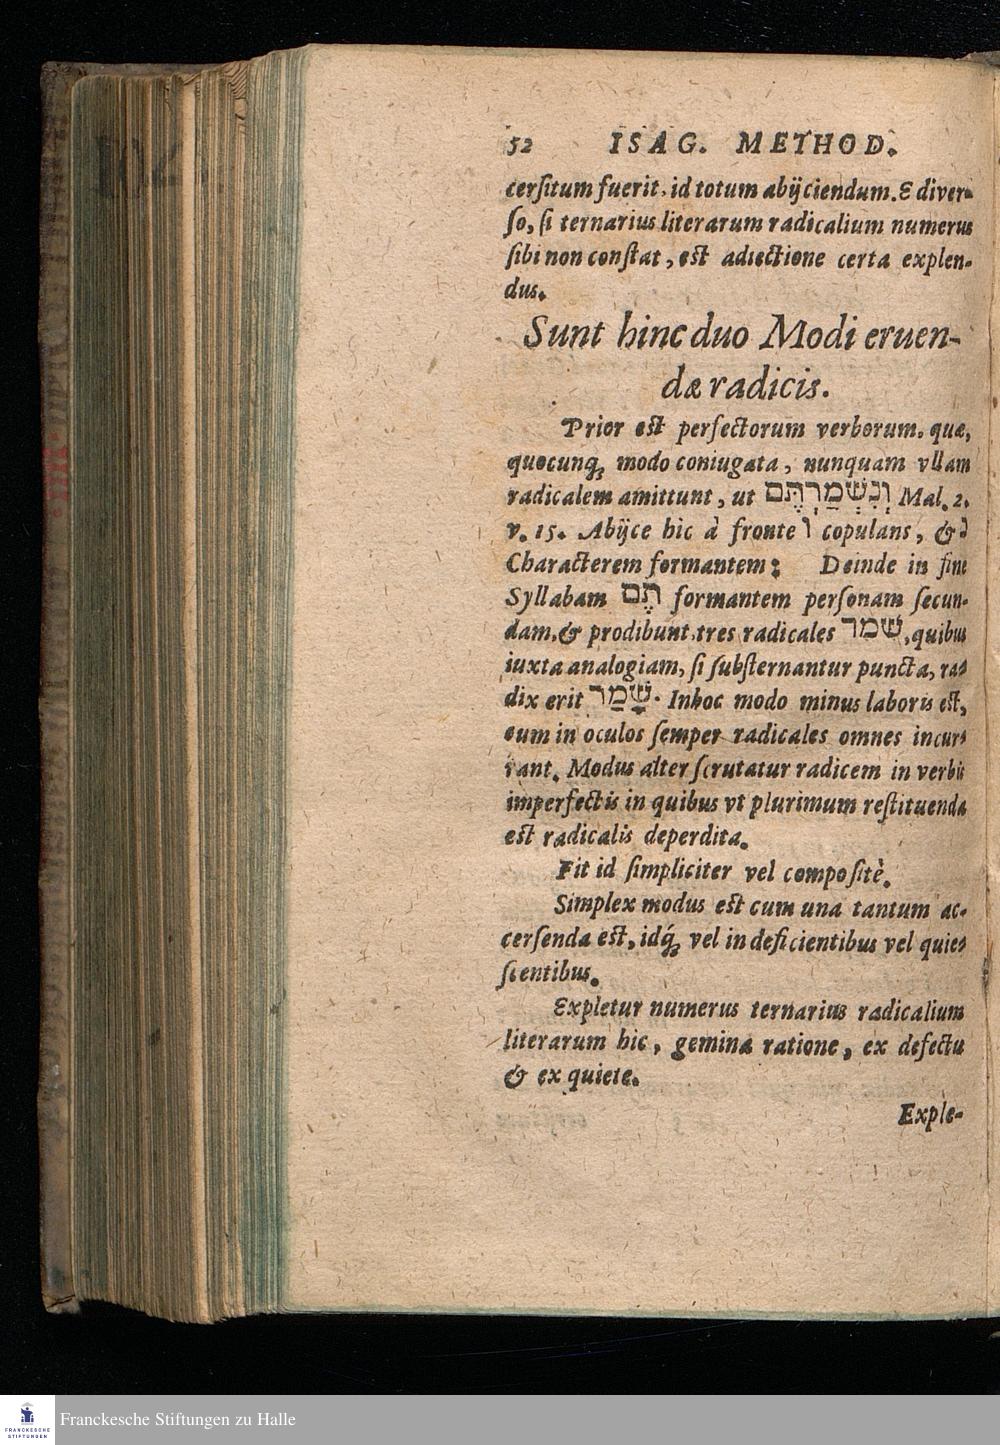 52 ISAG. METHOD.
cerſitum fuerit, id totum abijciendum. E diver-
ſo, ſi ternarius literarum radicalium numerus
ſibi non conſtat, est adiectione certa explen-
dus.
Sunt hinc duo Modi eruen-
dæ radicis.
Prior est perfectorum verborum, quæ,
quocunq́; modo coniugata, nunquam vllam
radicalem amittunt, ut וְנִשְׁמַרְתֶּם Mal. 2.
v. 15. Abijce hic à fronte ו copulans, & נ
Characterem formantem; Deinde in fine
Syllabam תֶם formantem perſonam ſecun-
dam, & prodibunt tres radicales שמר, quibus
iuxta analogiam, ſi ſubſternantur puncta, ra-
dix erit שָׁמַר. In hoc modo minus laboris est,
cum in oculos ſemper radicales omnes incur-
rant. Modus alter ſcrutatur radicem in verbis
imperfectis in quibus vt plurimum reſtituenda
est radicalis deperdita.
Fit id ſimpliciter vel compoſitè.
Simplex modus est cum una tantum ac-
cerſenda est, idq́; vel in deficientibus vel quie-
ſcentibus.
Expletur numerus ternarius radicalium
literarum hic, gemina ratione, ex defectu
& ex quiete.
Exple-
FRANCKESCHE
STIFTUNGEN
Franckesche Stiftungen zu Halle